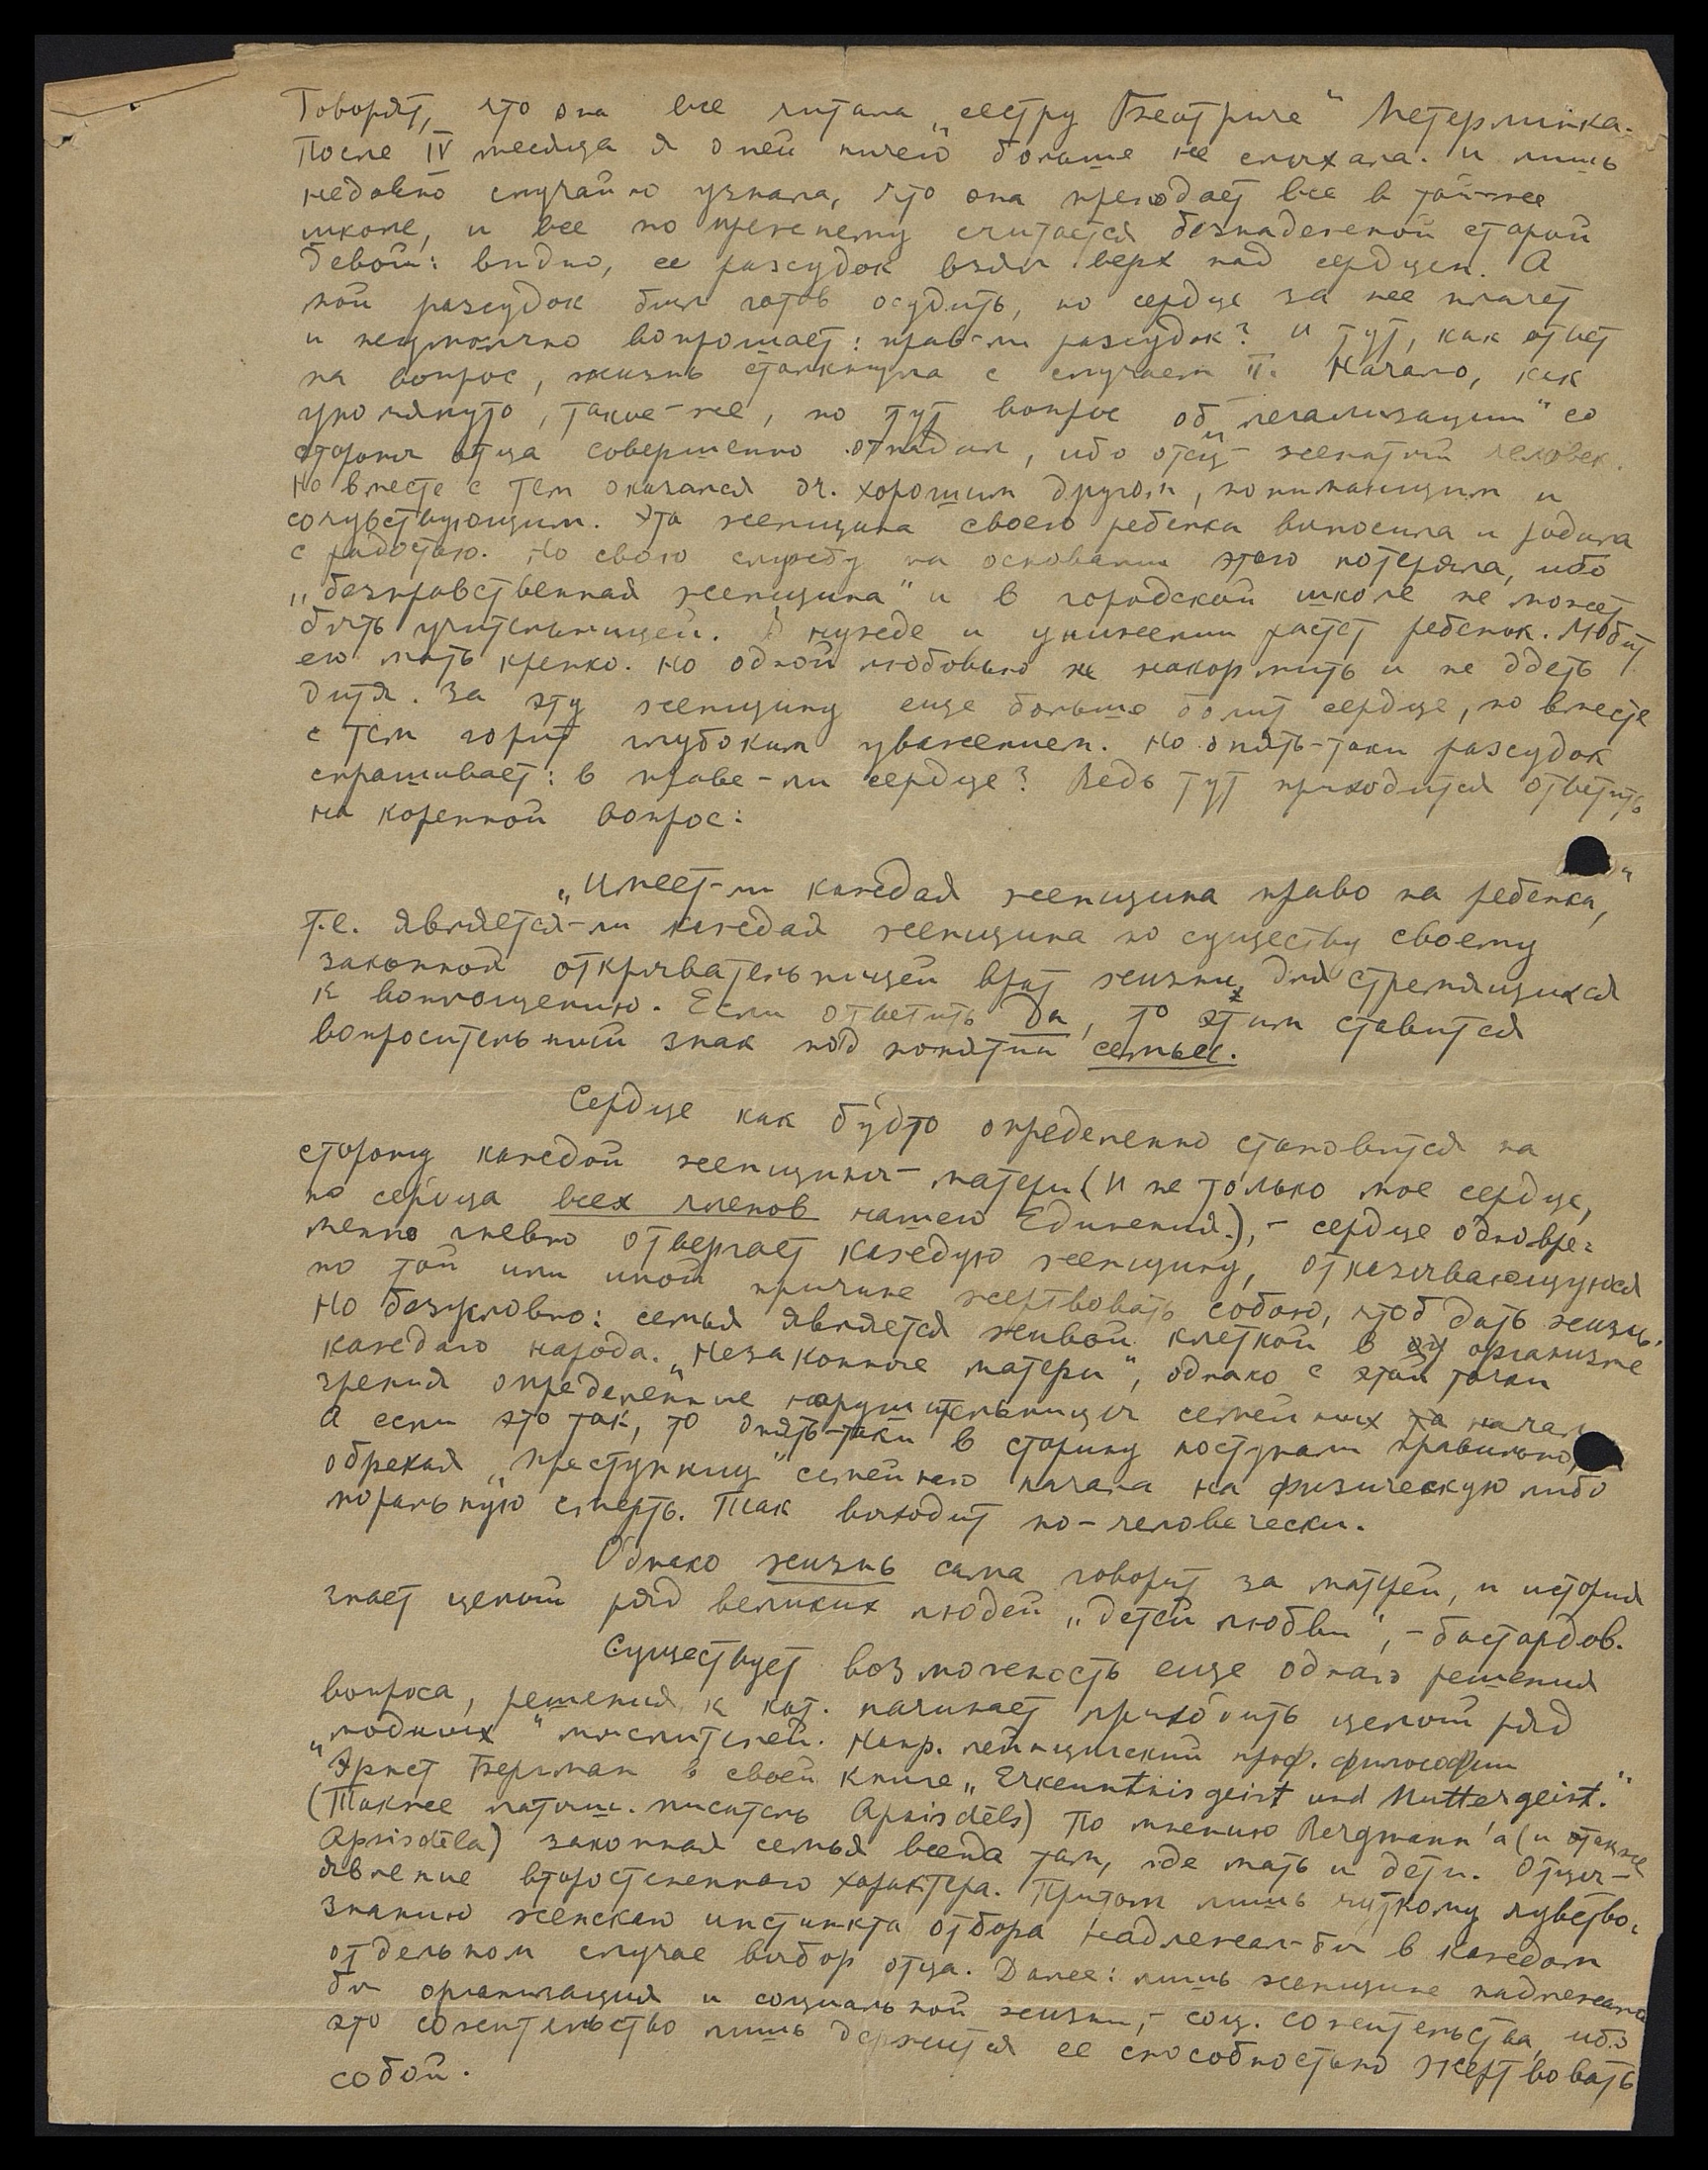 Говорят, что она все читала „сестру Беатриче“ Метерлинка.
После IV месяца я о ней ничего больше не слыхала. И лишь
недавно случайно узнала, что она преподает все в той-же
школе, и все по прежнему считается безнадежной старой
девой: видно, ее разсудок взял верх над сердцем. А
мой разсудок был готов осудить, но сердце за нее плачет
и неумолчно вопрошает: прав-ли разсудок? И тут, как ответ
на вопрос, жизнь столкнула с случаем II. Начало, как
упомянуто, такое-же, но тут вопрос об „легализации“ со
стороны отца совершенно отпадал, ибо отец - женатый человек.
Но вместе с тем оказался оч. хорошим другом, понимающим и
сочувствующим. Эта женщина своего ребенка выносила и родила
с радостью. Но свою службу на основании этого потеряла, ибо
„безнравственная женщина“ и в городской школе не может
быть учительницей. В нужде и унижении растет ребенок. Любит
его мать крепко. Но одной любовью не накормить и не одеть
дитя. За эту женщину еще больше болит сердце, но вместе
с тем горит глубоким уважением. Но опять-таки разсудок
спрашивает: в праве-ли сердце? Ведь тут приходится ответить
на коренной вопрос:
„Имеет-ли каждая женщина право на ребенка,“
т.е. является-ли каждая женщина по существу своему
законной открывательницей врат жизни для стремящихся
к воплощению. Если ответить да, то этим ставится
вопросительный знак под понятии семьи.
Сердце как будто определенно становится на
сторону каждой женщины - матери (и не только мое сердце,
но сердца всех членов нашего Единения.), - сердце одновре=
менно гневно отвергает каждую женщину, отказывающуюся
по той или иной причине жертвовать собою, чтоб дать жизнь.
Но безусловно: семья является живой клеткой в организме
каждаго народа. „Незаконные матери“, однако с этой точки
зрения определенные нарушительницы семейных начал.
А если это так, то опять-таки в старину поступали правильно,
обрекая „преступниц“ семейного начала на физическую либо
моральную смерть. Так выходит по-человечески.
Однако жизнь сама говорит за матерей, и история
знает целый ряд великих людей „детей любви“, - бастардов.
Существует возможность еще однаго решения
вопроса, решения к кот. начинает приходить целый ряд
„модных“ мыслителей. Напр. лейпцигский проф. философии
Эрнст Бергман в своей книге „Erkenntnisgeist und Muttergeist.“
(Также латыш. писатель Apsisdēls) По мнению Bergmann'a (и также
Apsisdēla) законная семья всегда там, где мать и дети. Отцы -
явление второстепенного характера. Притом лишь чуткому чувство-
знанию женскаго инстинкта отбора надлежал-бы в каждом
отдельном случае выбор отца. Далее: лишь женщине надлежала
бы организация и социальной жизни, - соц. сожительства, ибо
это сожительство лишь держится ее способностью жертвовать
собой.